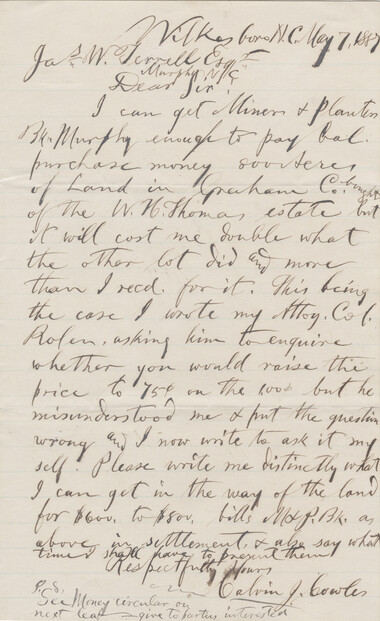 Wilkesboro N.C. May 7, 188
Jas. W. Terrell Esqr.
Murphy N.C.
Dear Sir!
I can get Miners & Planters
Bk. Murphy enough to pay bal.
purchase money 8000 Acres
of Land in Graham Co. bought
of the W. H. Thomas estate but
it will cost me double what
the other lot did and more
than I recd. for it. This being
the case I wrote my Attoy. Col.
Rolen, asking him to enquire
whether you would raise the
price to 75¢ on the 100¢ but he
misunderstood me & put the question
wrong and I now write to ask it my
self. Please write me distinctly what
I can get in the way of the land
for $600. to $800. bills M & P. Bk. as
above in settlement, & also say what
time I shall have to present them
Respectfully Yours
Calvin J. Cowles
P.S.
See Money circular on
next leaf — give to parties interested